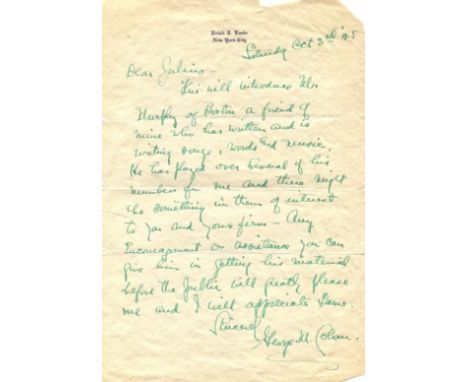 New York City
Oct 3rd
Dear Julius -
This will introduce Mr
Murphy of Boston a friend of
mine who has written and is
writing songs, words and music.
He has played over several of his
numbers for me and there might
be something in them of interest
to you and your firm - Any
encouragement or assistance you can
give him in getting his material
before the Public will greatly please
me and I will appreciate same.
Sincerely
George M. Cohan.